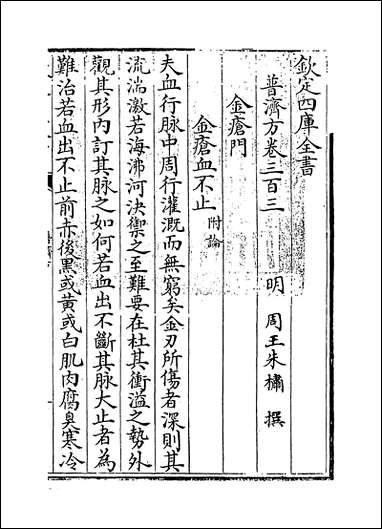 欽定四庫全書
普濟方卷三百三　明　周王朱橚　撰
金瘡門
金瘡血不止附論
夫血行脈中周行灌溉而無窮矣金刃所傷者深則其
流湍激若海沸河決禦之至難要在杜其衝溢之勢外
觀其形内訂其脈之如何若血出不斷其脈大止者為
難治若血出不止前赤後黒或黄或白肌肉腐臭寒冷